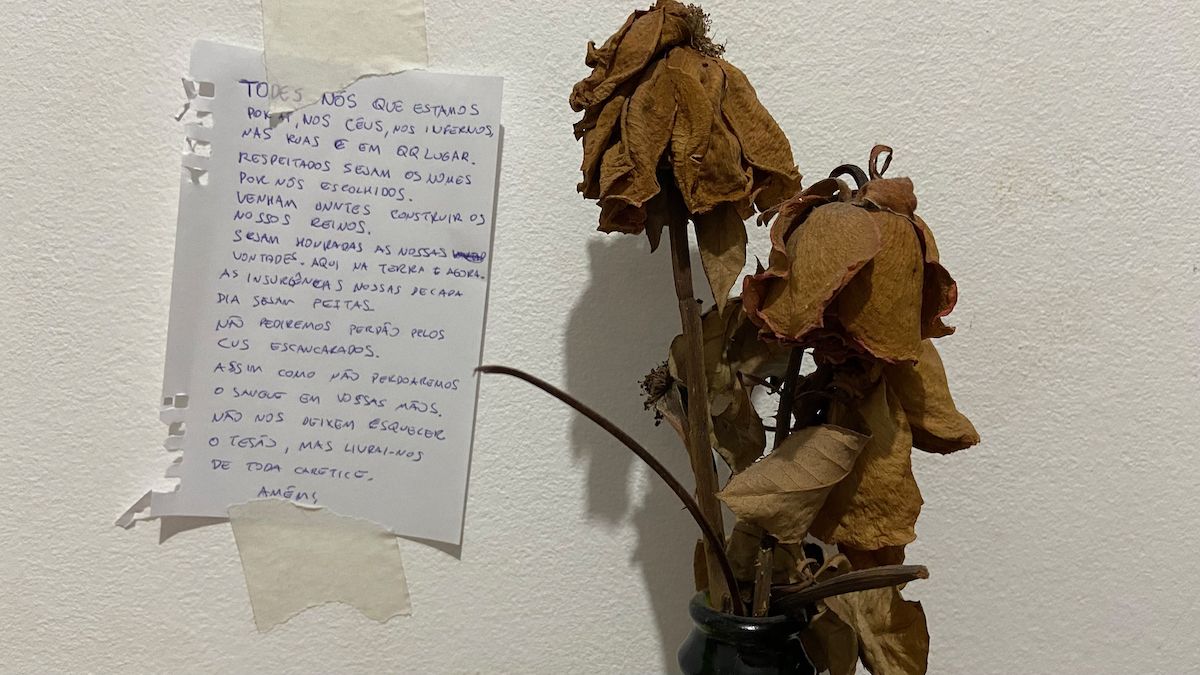 TODES NÓS QUE ESTAMOS
POR AÍ, NOS CÉUS, NOS INFERNOS,
NAS RUAS E EM QQ LUGAR.
RESPEITADOS SEJAM OS NOMES
POR NÓS ESCOLHIDOS.
VENHAM CONSTRUIR OS
NOSSOS REINOS.
SEJAM HONRADAS AS NOSSAS
VONTADES. AQUI NA TERRA E AGORA.
AS INSURGÊNCIAS NOSSAS DE CADA
DIA SEJAM FEITAS
NÃO PEDIREMOS PERDÃO PELOS
CUS ESCANCARADOS.
ASSIM COMO NÃO PERDOAREMOS
O SANGUE EM VOSSAS MÃOS.
NÃO NOS DEIXEM ESQUECER
O TESÃO, MAS LIVRAI-NOS
DE TODA CARETICE.
AMÉM,